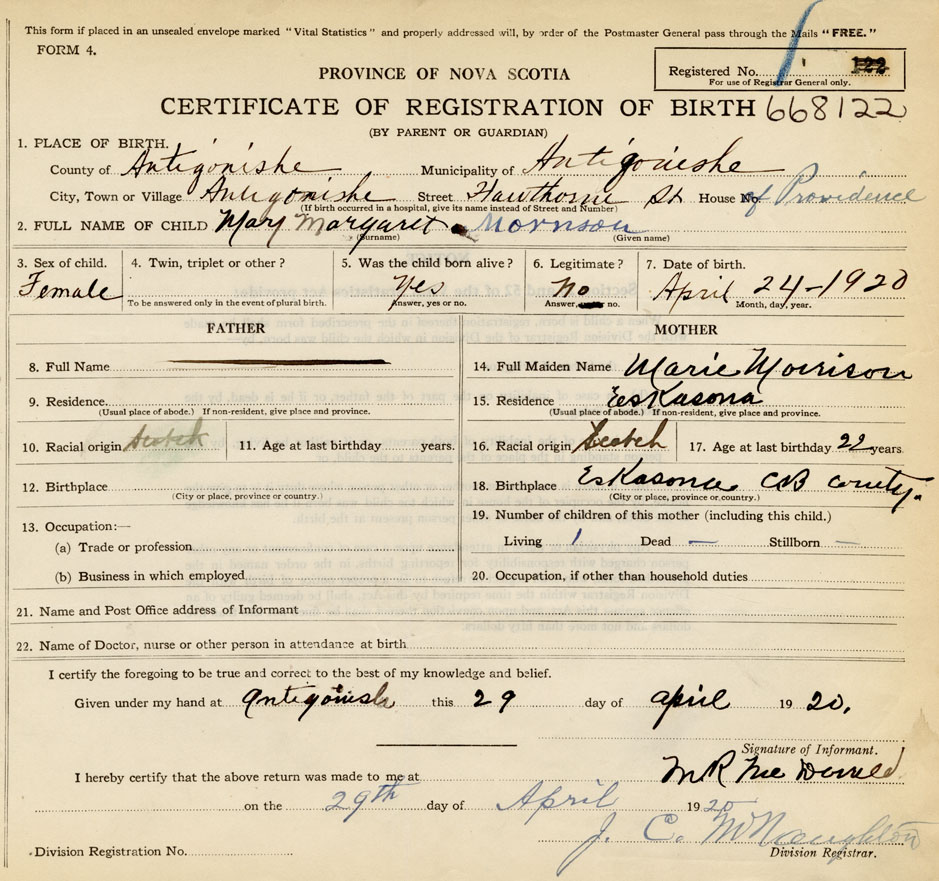 This form if placed in an unsealed envelope marked "Vital Statistics" and properly addressed will, by order of the Postmaster General pass through the Mails "FREE."
FORM 4.
Registered No. 122
For use of Registrar General only.
PROVINCE OF NOVA SCOTIA
CERTIFICATE OF REGISTRATION OF BIRTH 668122
(BY PARENT OR GUARDIAN)
1. PLACE OF BIRTH.
County of Antigonishe Municipality of Antigonishe
City, Town or Village Antigonishe Street Hawthorne St House No. of Providence
(If birth occurred in a hospital, give its name instead of Street and Number)
2. FULL NAME OF CHILD Mary Margaret Morrison
(Surname) (Given name)
3. Sex of child. 4. Twin, triplet or other? 5. Was the child born alive? 6. Legitimate? 7. Date of birth.
Female Yes No April 24-1920
To be answered only in the event of plural birth. Answer, yes or no. Answer, or no. Month, day, year.
FATHER MOTHER
8. Full Name 14. Full Maiden Name Marie Morrison
9. Residence. 15. Residence Eskasona
(Usual place of abode.) If non-resident, give place and province. (Usual place of abode.) If non-resident, give place and province.
10. Racial origin Scotch 11. Age at last birthday years. 16. Racial origin Scotch 17. Age at last birthday 22 years.
12. Birthplace 18. Birthplace Eskasona CB County.
(City or place, province or country.) (City or place, province or country.)
13. Occupation:— 19. Number of children of this mother (including this child.)
(a) Trade or profession Living 1 Dead — Stillborn —
(b) Business in which employed 20. Occupation, if other than household duties
21. Name and Post Office address of Informant
22. Name of Doctor, nurse or other person in attendance at birth
I certify the foregoing to be true and correct to the best of my knowledge and belief.
Given under my hand at Antigonish this 29 day of april 19 20.
Signature of Informant.
I hereby certify that the above return was made to me at M R McDonald
on the 29th day of April 1920
J. C. McNaughton
Division Registration No. Division Registrar.